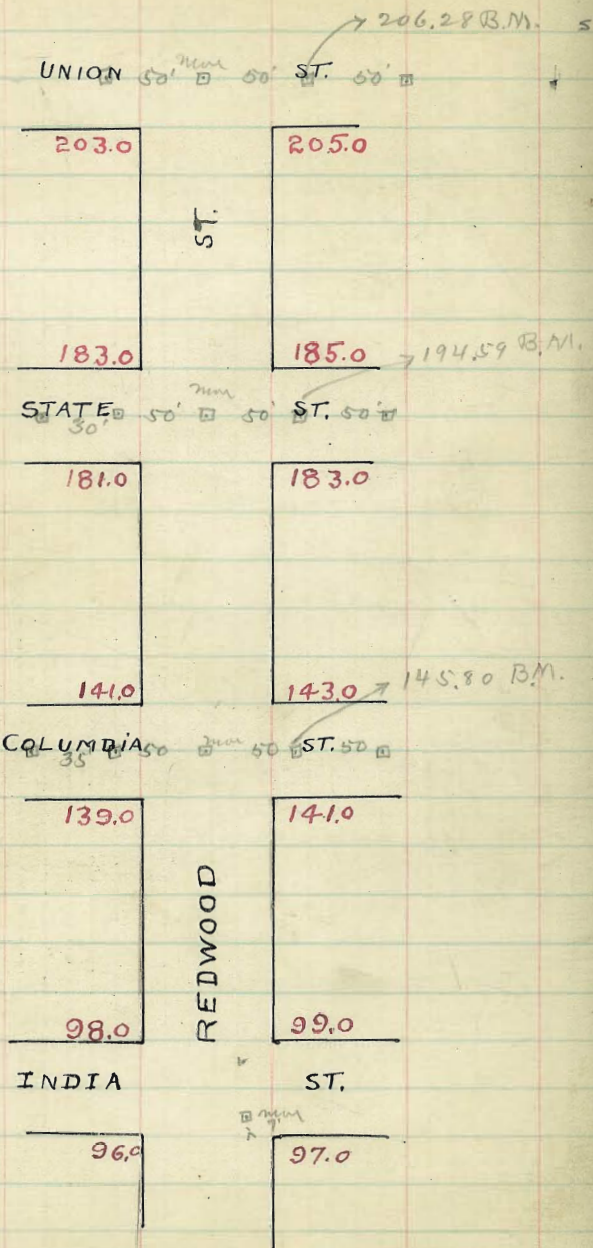 206.28 B.M.
UNION 50' 50' ST. 50'
203.0 205.0
ST.
183.0 185.0
194.59 B.M.
STATE 30' 50' 50' ST. 50'
181.0 183.0
141.0 143.0
145.80 B.M.
COLUMBIA 35' 50 50 ST. 50
139.0 141.0
REDWOOD
98.0 99.0
INDIA ST.
96.0 97.0